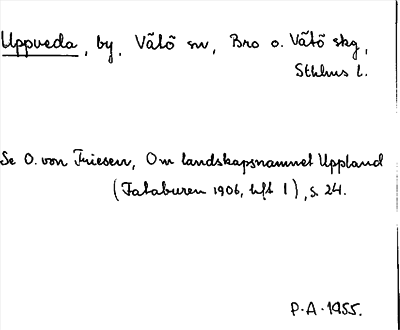 Uppveda, by, Vätö sn, Bro o. Vätö skg,
Sthlms l.
Se O. von Friesen, Om landskapsnamnet Uppland
(Fataburen 1906, hft 1), s. 24.
P. A. 1955.